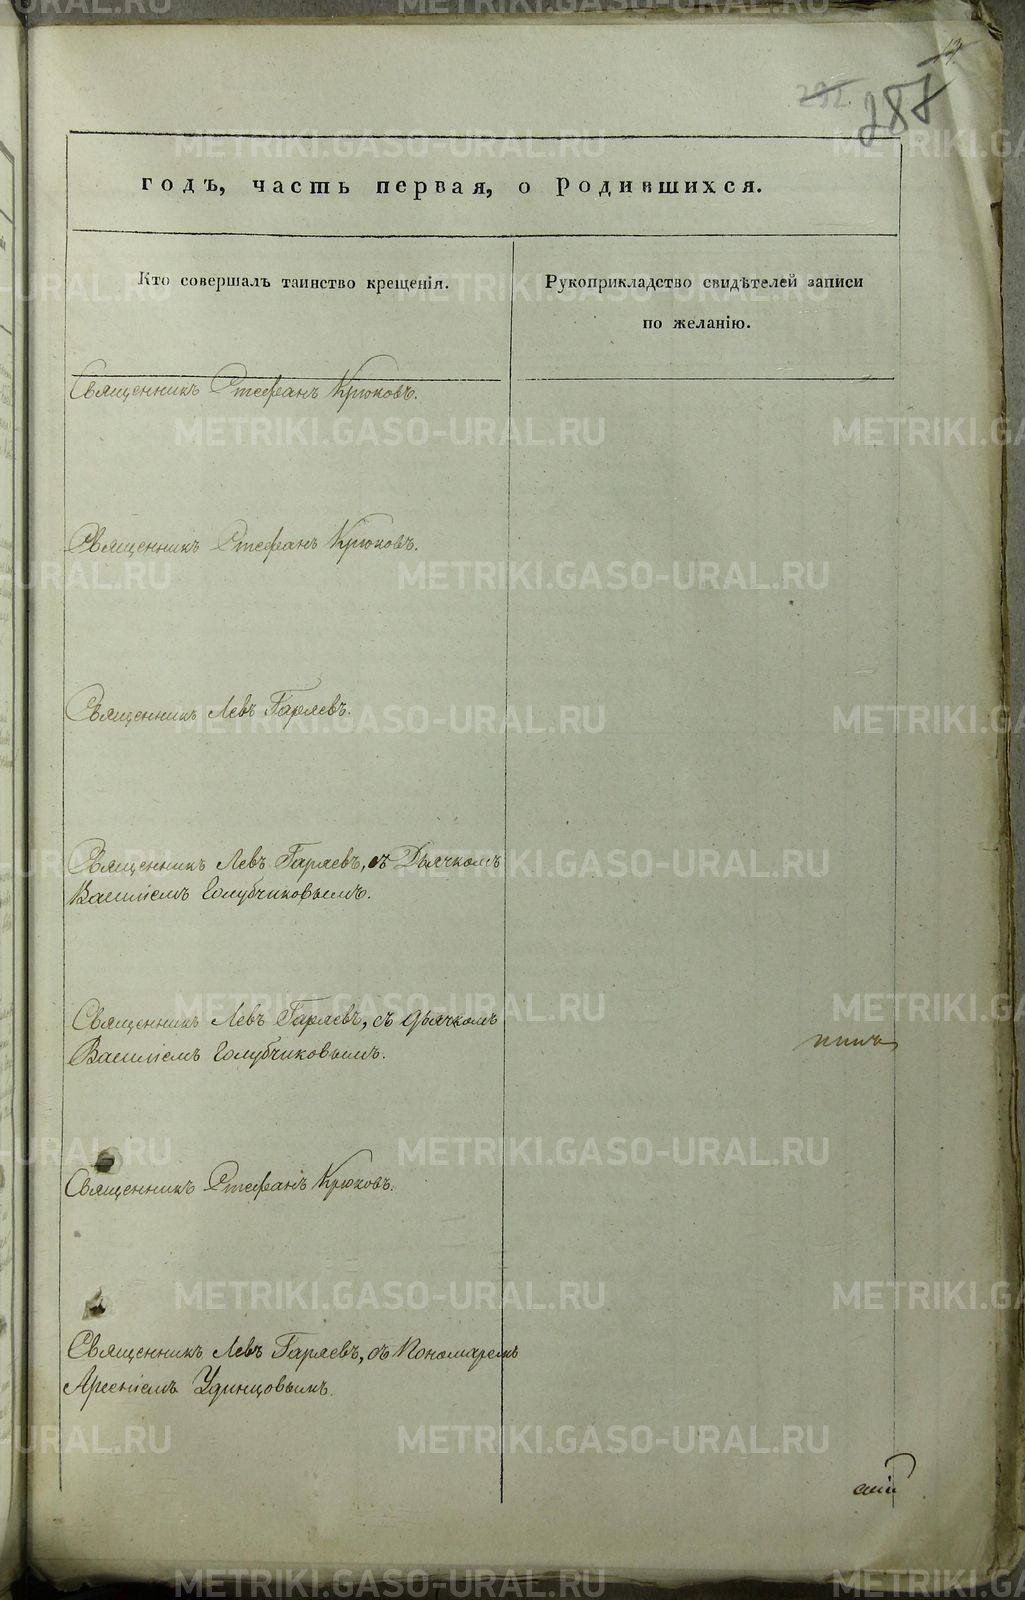 292
годъ, часть первая, о родившихся.
Кто совершалъ таинство крещенія.
Рукоприкладство свидѣтелей записи
по желанію.
Священникъ Стефанъ Крюковъ.
Священникъ Стефанъ Крюковъ.
Священникъ Левъ Гаряевъ.
Священникъ Левъ Гаряевъ, съ Дьячкомъ
Василіемъ Голубчиковымъ.
Священникъ Левъ Гаряевъ, съ дьячкомъ
Василіемъ Голубчиковымъ.
Священникъ Стефанъ Крюковъ.
Священникъ Левъ Гаряевъ, съ Пономаремъ
Арсеніемъ Удинцовымъ.
METRIKI.GASO-URAL.RU